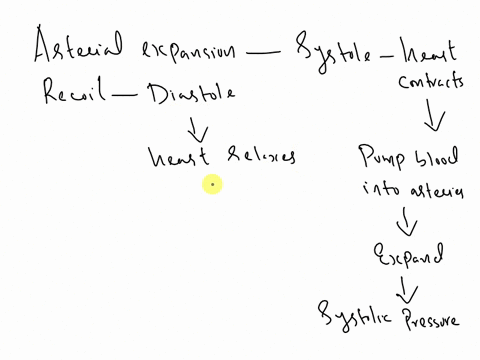 Arterial expansion — Systole - heart contracts
Recoil — Diastole
↓
heart relaxes
↓
Pump blood
into arteries
↓
Expand
↓
Systolic Pressure